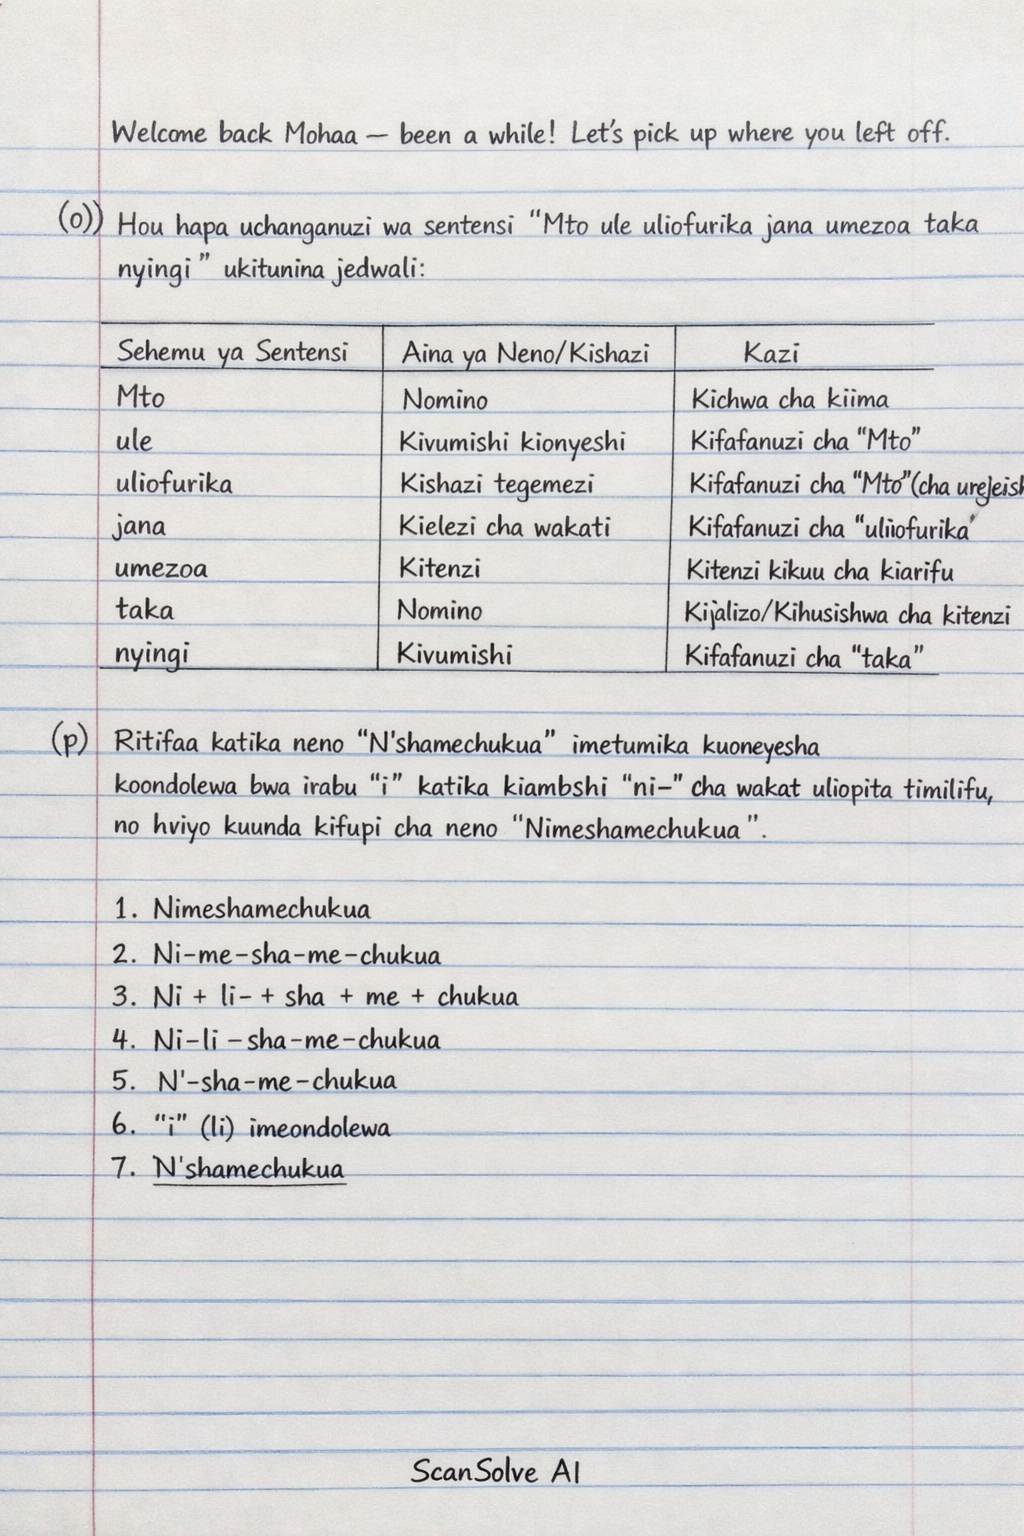 Welcome back Mohaa — been a while! Let's pick up where you left off.
(o)) Hou hapa uchanganuzi wa sentensi "Mto ule uliofurika jana umezoa taka
nyingi" ukitunina jedwali:
Sehemu ya Sentensi | Aina ya Neno/Kishazi | Kazi
Mto | Nomino | Kichwa cha kiima
ule | Kivumishi kionyeshi | Kifafanuzi cha "Mto"
uliofurika | Kishazi tegemezi | Kifafanuzi cha "Mto"(cha urejeish
jana | Kielezi cha wakati | Kifafanuzi cha "uliiofurika'
umezoa | Kitenzi | Kitenzi kikuu cha kiarifu
taka | Nomino | Kijalizo/Kihusishwa cha kitenzi
nyingi | Kivumishi | Kifafanuzi cha "taka"
(p) Ritifaa katika neno "N'shamechukua" imetumika kuoneyesha
koondolewa bwa irabu "i" katika kiambshi "ni-" cha wakat uliopita timilifu,
no hviyo kuunda kifupi cha neno "Nimeshamechukua".
1. Nimeshamechukua
2. Ni-me-sha-me-chukua
3. Ni + li- + sha + me + chukua
4. Ni-li-sha-me-chukua
5. N'-sha-me-chukua
6. "i" (li) imeondolewa
7. N'shamechukua
ScanSolve AI